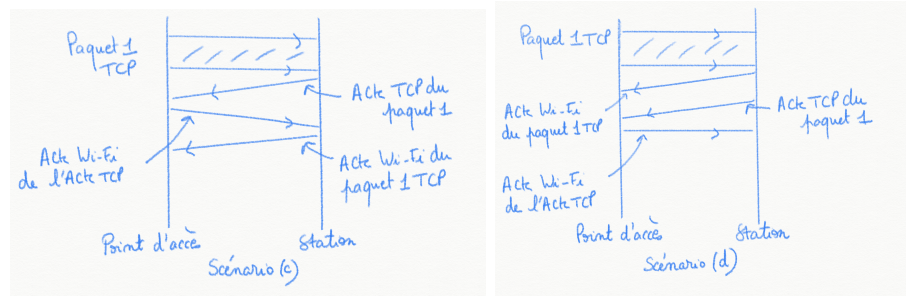 Paquet 1
TCP
Ack TCP du
paquet 1
Ack Wi-Fi
de l'Ack TCP
Ack Wi-Fi du
paquet 1 TCP
Point d'accès
Station
Scénario (c)
Paquet 1 TCP
Ack Wi-Fi
du paquet 1 TCP
Ack TCP du
paquet 1
Ack Wi-Fi
de l'Ack TCP
Point d'accès
Station
Scénario (d)